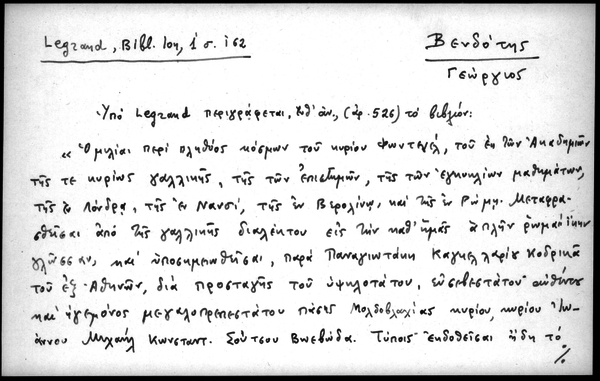 Legrand, Bibl. Ion, 1 σ. 162
Βενδότης
Γεώργιος
Ὑπό Legrand περιγράφεται, ἔνθ' ἀν., (ἀρ. 526) τό βιβλίον:
« Ὁμιλίαι περί πληθύος κόσμων τοῦ κυρίου Φωντενέλ, τοῦ ἐκ τῶν Ἀκαδημιῶν
τῆς τε κυρίως γαλλικῆς, τῆς τῶν ἐπιστημῶν, τῆς τῶν ἐγκυκλίων μαθημάτων,
τῆς ἐν Λόνδρᾳ, τῆς ἐν Νανσί, τῆς ἐν Βερολίνῳ, καί τῆς ἐν Ρώμῃ. Μεταφρα-
σθεῖσαι ἀπό τῆς γαλλικῆς διαλέκτου εἰς τήν καθ' ἡμᾶς ἁπλῆν ρωμαίικην
γλῶσσαν, καί ὑποσημειωθεῖσαι, παρά Παναγιωτάκη Καγκελλαρίου Κοδρικᾶ
τοῦ ἐξ Ἀθηνῶν, διά προσταγῆς τοῦ ὑψηλοτάτου, εὐσεβεστάτου αὐθέντου
καί ἡγεμόνος μεγαλοπρεπεστάτου πάσης Μολδοβλαχίας κυρίου, κυρίου Ἰω-
άννου Μιχαήλ Κωνσταντ. Σούτσου Βοεβόδα. Τύποις ἐκδοθεῖσαι ἤδη τό
./.